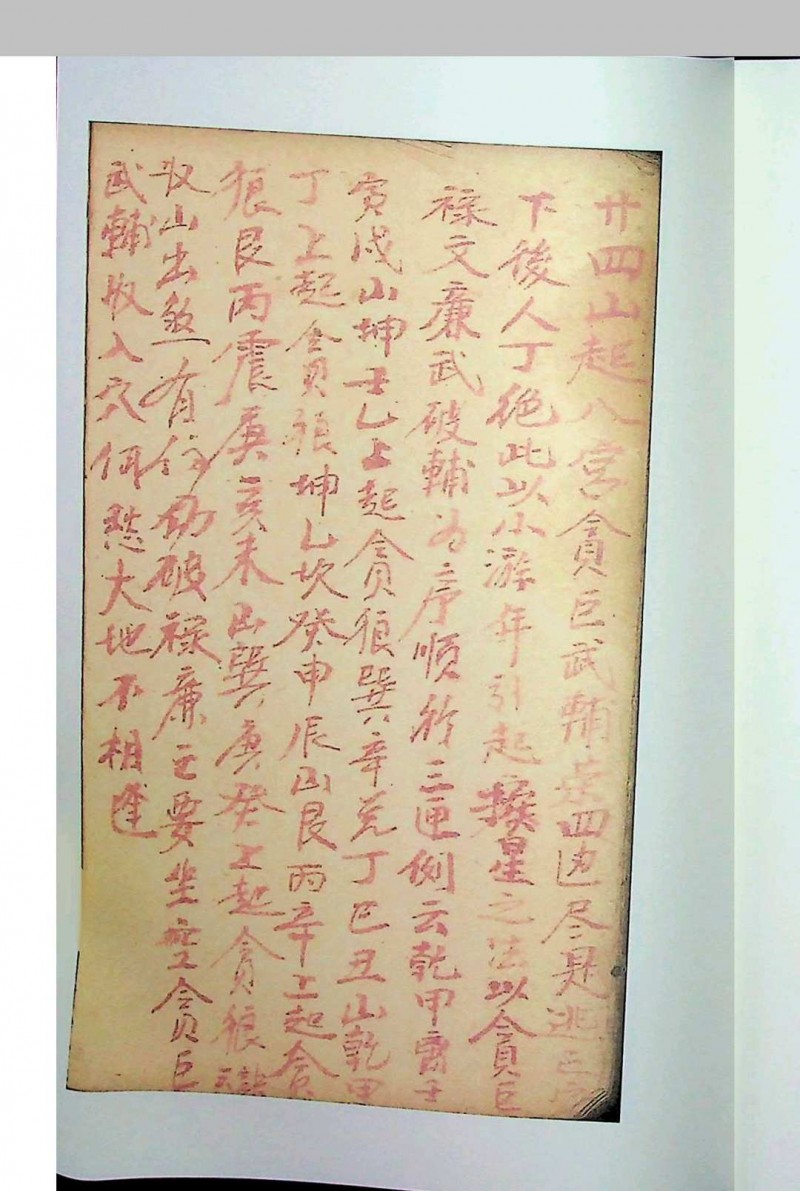 廿四山起八宮貪巨武輔 四边尽是逃亡
下後人丁絶此以小游年引起挨星之法以貪巨
禄文廉武破輔为序順行三匝例云乾甲
寅戌山坤壬乙上起贪狼巽辛兑丁巳丑山乾甲
丁上起貪狼坤乙坎癸申辰山艮丙辛上起貪
狼艮丙震庚亥未山巽庚癸上起貪狼訣
收山出煞有 仍破禄廉之要坐空貪巨
武輔收入穴何愁大地不相逢